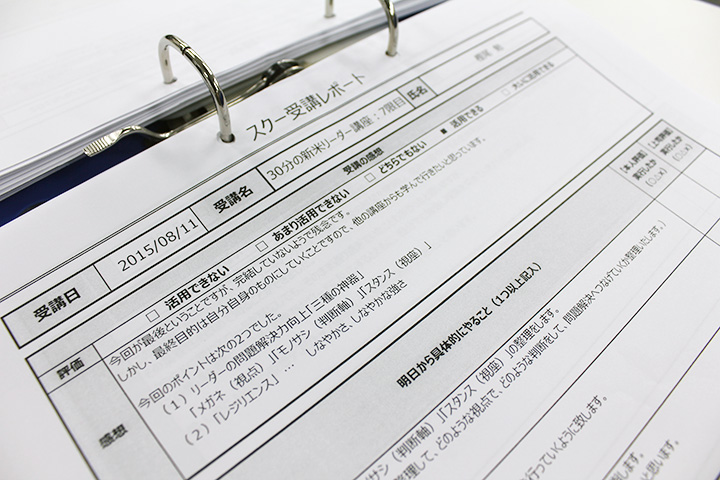 スクー受講レポート
受講日 2015/08/11 受講名 30分の新米リーダー講座:7限目 氏名
受講の感想
評価 □ 活用できない □ あまり活用できない □ どちらでもない ■ 活用できる □ 大いに活用できる
感想
今回が最後ということですが、完結していないようで残念です。
しかし、最終目的は自分自身のものにしていくことですので、他の講座からも学んで行きたいと思っています。
今回のポイントは次の2つでした。
(1)リーダーの問題解決力向上「三種の神器」
「メガネ(視点)」「モノサシ(判断軸)」「スタンス(視座)」
(2)「レジリエンス」… しなやかさ、しなやかな強さ
明日から具体的にやること(1つ以上記入)
【本人評価】
実行したか
(○△×)
【上長評価】
実行したか
(○△×)
モノサシ(判断軸)」「スタンス(視座)」の整理をします。
整理して、どのような視点で、どのような判断をして、問題解決へつなげていくか整理いたします。)
行っていくように致します。
します。
思います。